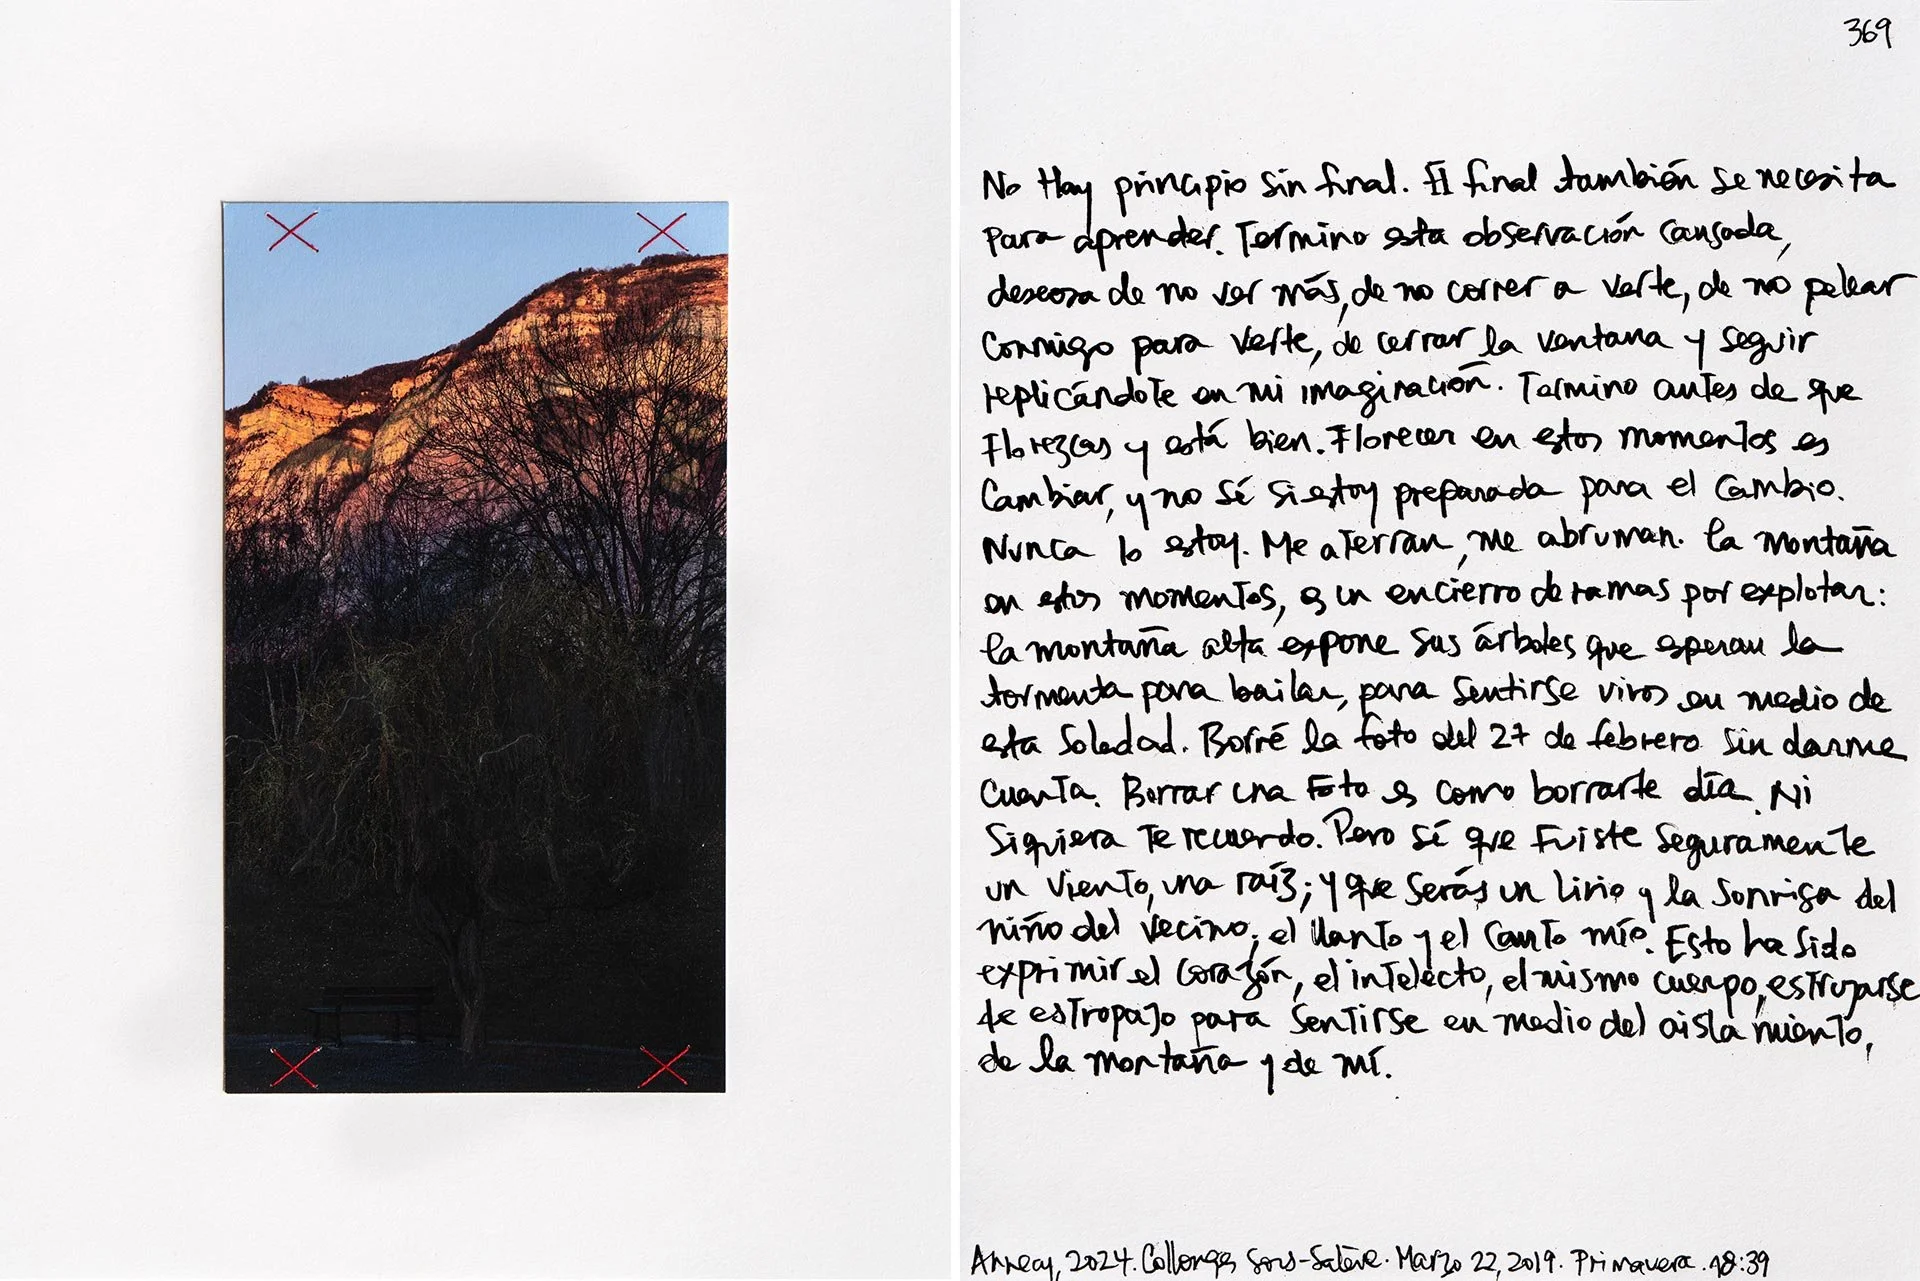 369
No Hay principio sin final. El final también se necesita
para aprender. Termino esta observación cansada,
deseosa de no ver más, de no correr a verte, de no pelear
conmigo para verte, de cerrar la ventana y seguir
replicándote en mi imaginación. Termino antes de que
Florezcas y está bien. Florecer en estos momentos es
Cambiar, y no sé si estoy preparada para el cambio.
Nunca lo estoy. Me aterran, me abruman. La montaña
en estos momentos, es un encierro de ramas por explotar:
la montaña alta expone sus árboles que esperan la
tormenta para bailar, para sentirse vivos en medio de
esta soledad. Borré la foto del 27 de febrero sin darme
cuenta. Borrar una foto es como borrarte día. Ni
siquiera te recuerdo. Pero sí que fuiste seguramente
un viento, una raíz; y que serás un lirio y la sonrisa del
niño del vecino; el llanto y el canto mío. Esto ha sido
exprimir el corazón, el intelecto, el mismo cuerpo, estrujarse
de estropajo para sentirse en medio del aislamiento,
de la montaña y de mí.
Annecy, 2024. Collonges Sous-Salève. Marzo 22, 2019. Primavera. 18:39